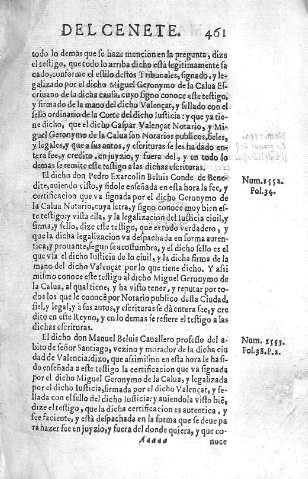 DEL CENETE. 461
todo lo demàs que se haze mencion en la pregunta, dize
el testigo, que todo lo arriba dicho està legitimamente sa
cado, conforme el estilo destos Tribunales, signado, y le-
galizado por el dicho Miguel Geronymo de la Calua Es-
criuano de la dicha causa, cuyo signo conoce este testigo,
y firmado de la mano del dicho Valençat, y sellado con el
sello ordinario de la Corte del dicho Iusticia: y que ya tie-
ne dicho, que el dicho Gaspar Valençat Notario, y Mi-
guel Geronymo de la Calua son Notarios publicos, fieles,
y legales, y que a sus autos, y escrituras se les ha dado en-
tera fee, y credito, en juyzio, y fuera del, y en todo lo
demas se remite este testigo a las dichas escrituras.
El dicho don Pedro Exarcolin Beluis Conde de Bene-
dite, auiendo visto, y sidole enseñada en esta hora la fee, y
certificacion que va signada por el dicho Geronymo de
la Calua Notario, cuya letra, y signo conoce muy bien es-
te testigo: y vista ella, y la legalizacion del Iusticia ciuil, y
firma, y sello, dize este testigo, que es todo verdadero, y
que la dicha legalizacion va despachada en forma auten-
tica, y prouante, segun se acostumbra, y el dicho sello es el
que vsa el dicho Iusticia de lo ciuil, y la dicha firma de la
mano del dicho Valençat por lo que tiene dicho. Y assi
mismo conoce este testigo al dicho Miguel Geronymo de
la Calua, al qual tiene, y ha visto tener, y reputar por to-
dos los que le conocē por Notario publico desta Ciudad,
fiel, y legal, y à sus autos, y escrituras se dà entera fee, y cre
dito en este Reyno, y en lo demas se refiere el testigo a las
dichas escrituras.
El dicho don Manuel Beluis Cauallero professo del a-
bito de señor Santiago, vezino y morador de la dicha ciu
dad de Valencia: dixo, que assimismo en esta hora le ha si-
do enseñada a este testigo la certificacion que va signada
por el dicho Miguel Geronymo de la Calua, y legalizada
por el dicho Iusticia, firmada por el dicho Valençat, y se-
llada con el sello del dicho Iusticia: y auiendola visto biē,
dize el testigo, que la dicha certificacion es autentica, y
fee faciente, y està despachada en la forma que se deue pa
ra hazer fee en juyzio, y fuera del donde quiera, y que co-
Aaaaa noce
Num. 1552.
Fol. 34.
Num. 1553.
Fol. 38. P. 2.